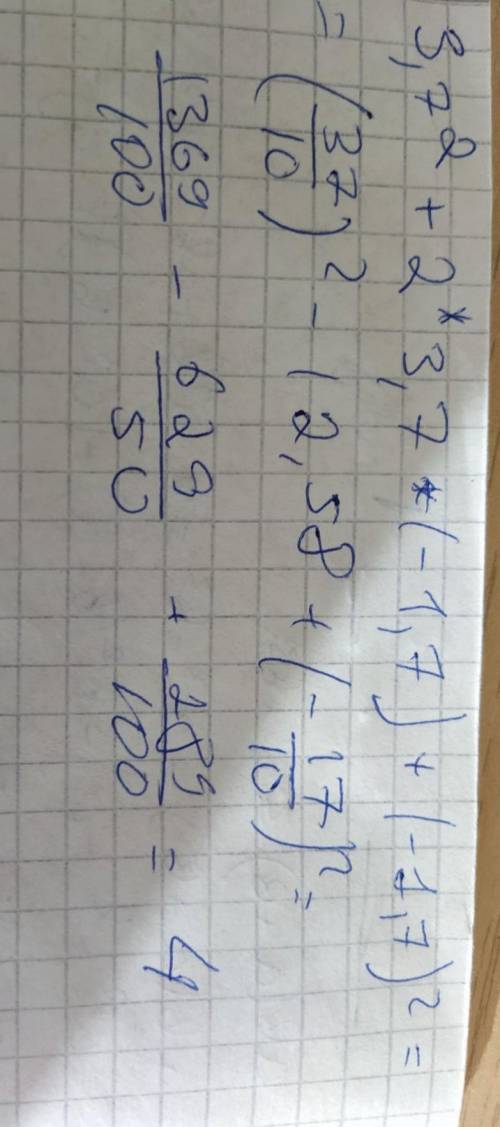 3,7² + 2*3,7*(-1,7) + (-1,7)² =
= (37/10)² - 12,58 + (-17/10)² =
1369/100 - 629/50 + 289/100 = 4